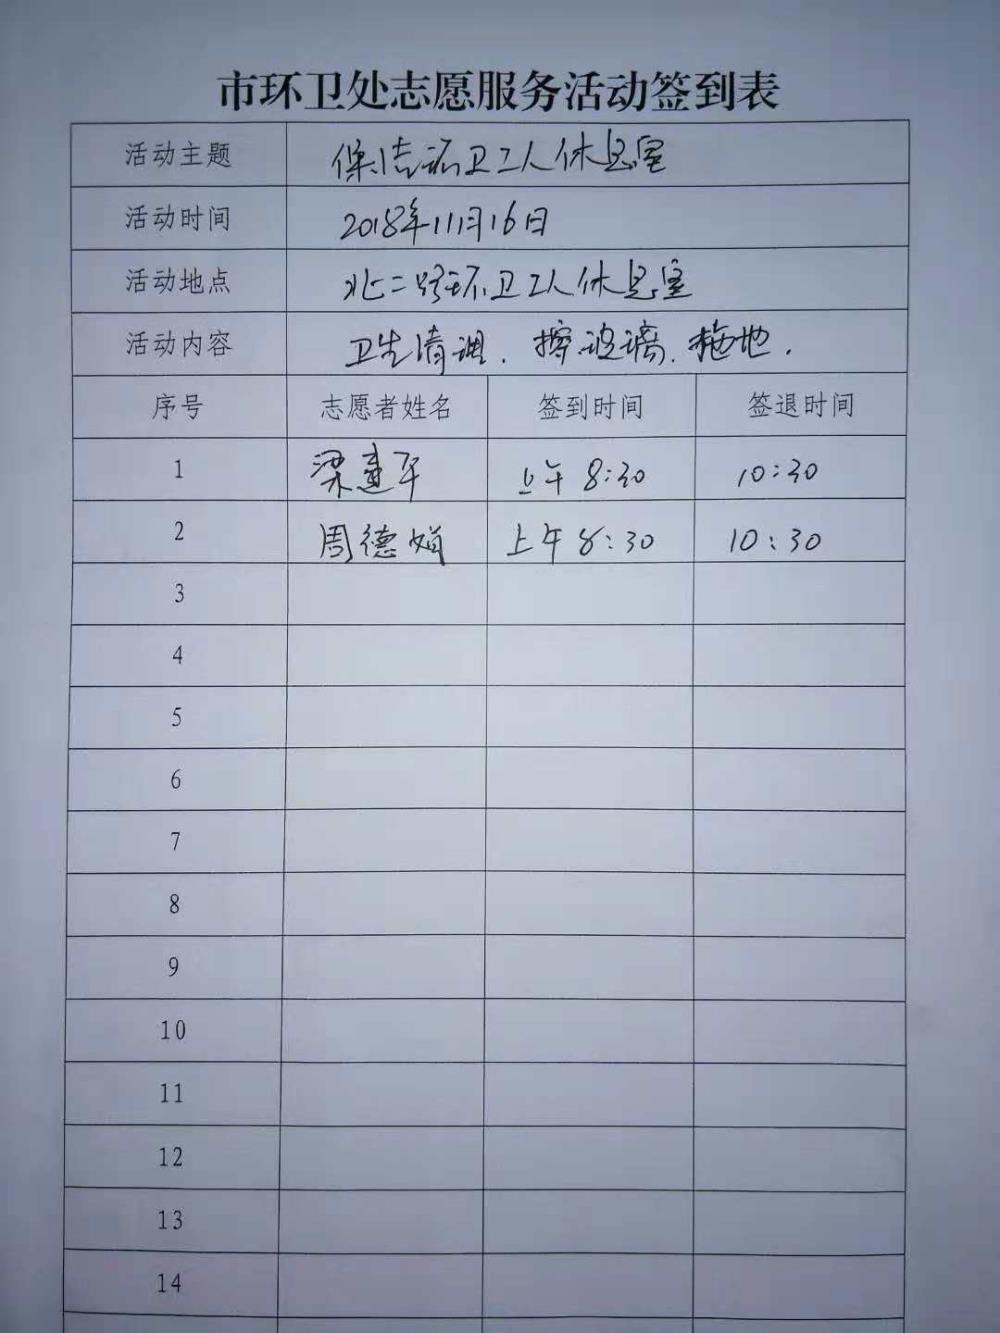 市环卫处志愿服务活动签到表
活动主题 保洁环卫工人休息室
活动时间 2018年11月16日
活动地点 北二路环卫工人休息室
活动内容 卫生清理、擦玻璃、拖地.
序号 志愿者姓名 签到时间 签退时间
1 梁建平 上午8:30 10:30
2 周德娟 上午8:30 10:30
3
4
5
6
7
8
9
10
11
12
13
14